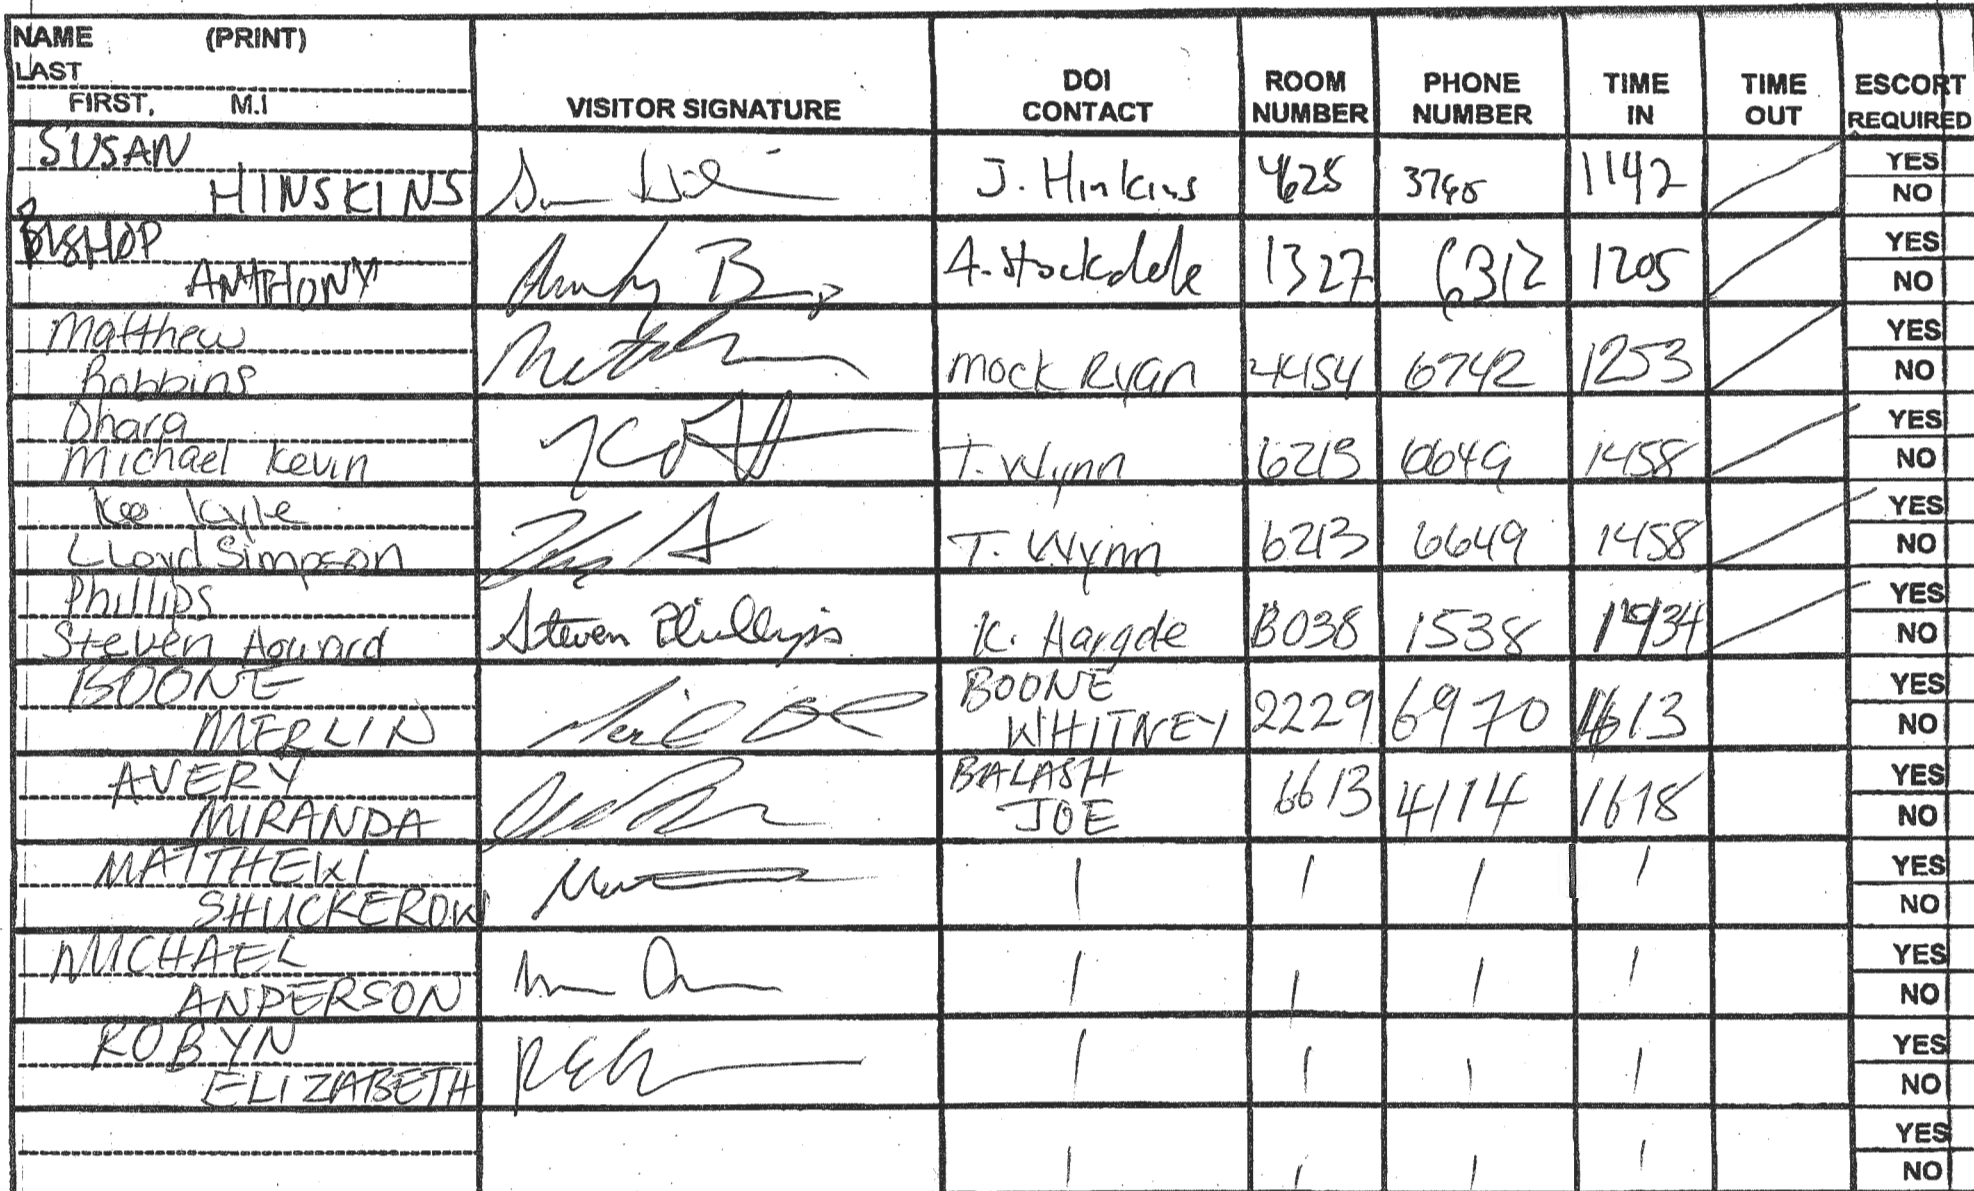 NAME (PRINT)
LAST
FIRST, M.I
VISITOR SIGNATURE
DOI CONTACT
ROOM NUMBER
PHONE NUMBER
TIME IN
TIME OUT
ESCORT REQUIRED
SUSAN
HINSKINS J. Hinkins 4625 1142 YES NO
BISHOP
ANTHONY A. Stockdale 1327 6312 1205 YES NO
Matthew
Robbins Mock Ryan 4454 6742 1253 YES NO
Dhara
Michael Kevin T. Wynn 6213 6649 1458 YES NO
Kyle
Lloyd Simpson T. Wynn 6213 6649 1458 YES NO
Phillips
Steven Howard Steven Phillips K. Hargde B038 1538 YES NO
BOONE
MERLIN BOONE WHITNEY 2229 6970 1613 YES NO
AVERY
MIRANDA BALASH JOE 6613 4114 1618 YES NO
MATTHEW
SHUCKEROW YES NO
MICHAEL
ANDERSON YES NO
ROBYN
ELIZABETH YES NO
YES NO